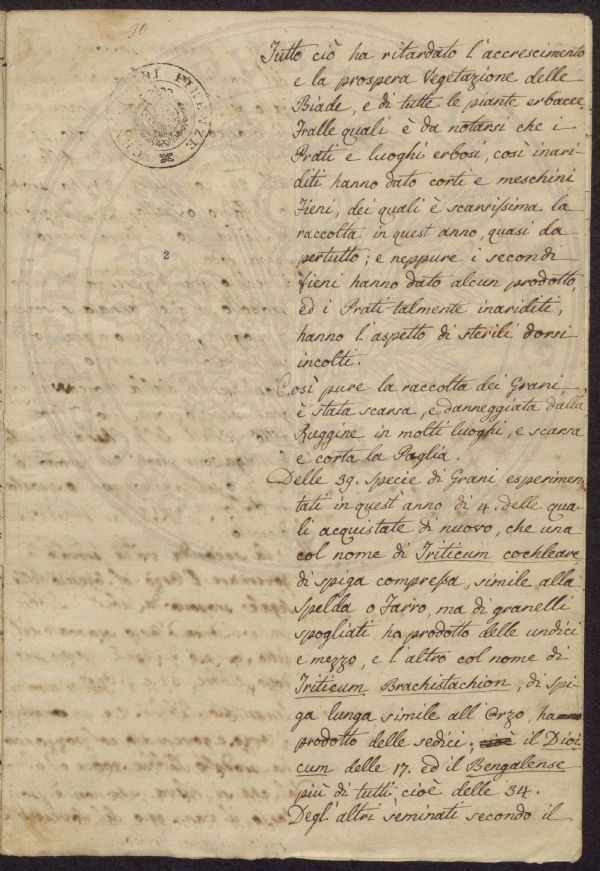 30
DI FIRENZE
Tutto ciò ha ritardato l'accrescimento
e la prospera Vegetazione delle
Biade, e di tutte le piante erbacee.
Fralle quali è da notarsi che i
Prati e luoghi erbosi, così inari-
diti hanno dato corti e meschini
Fieni, dei quali è scarsissima la
raccolta in quest'anno, quasi da
pertutto; e neppure i secondi
fieni hanno dato alcun prodotto,
ed i Prati talmente inariditi,
hanno l'aspetto di sterili dorsi
incolti.
2
Così pure la raccolta dei Grani
è stata scarsa, e danneggiata dalla
Ruggine in molti luoghi, e scarsa
e corta la Paglia.
Delle 39. Specie di Grani esperimen
tati in quest'anno di 4. delle qua-
li acquistate di nuovo, che una
col nome di Triticum cochleare,
di spiga compressa, simile alla
Spelda o Farro, ma di granelli
spogliati ha prodotto delle undici
e mezzo, e l'altro col nome di
Triticum Brachistachion, di spi-
ga lunga simile all'Orzo, ha
prodotto delle sedici; cioè il Dioi
cum delle 17. ed il Bengalense
più di tutti cioè delle 34.
Degl'altri seminati secondo il